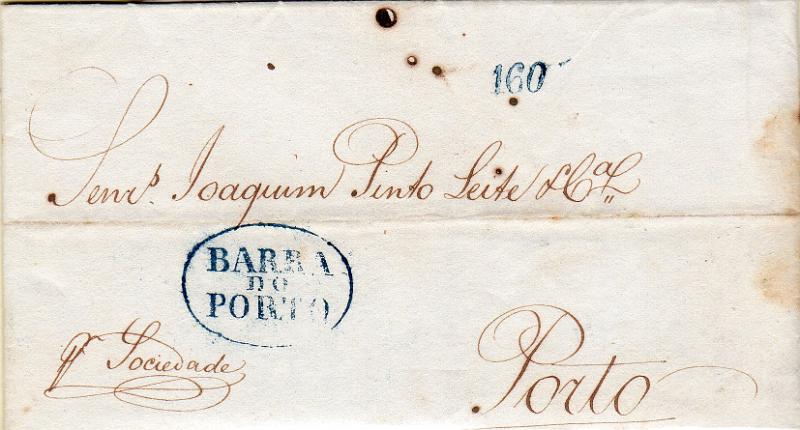 160
Senrs. Joaquim Pinto Leite & Ca
BARRA
DO
PORTO
pr Sociedade
Porto